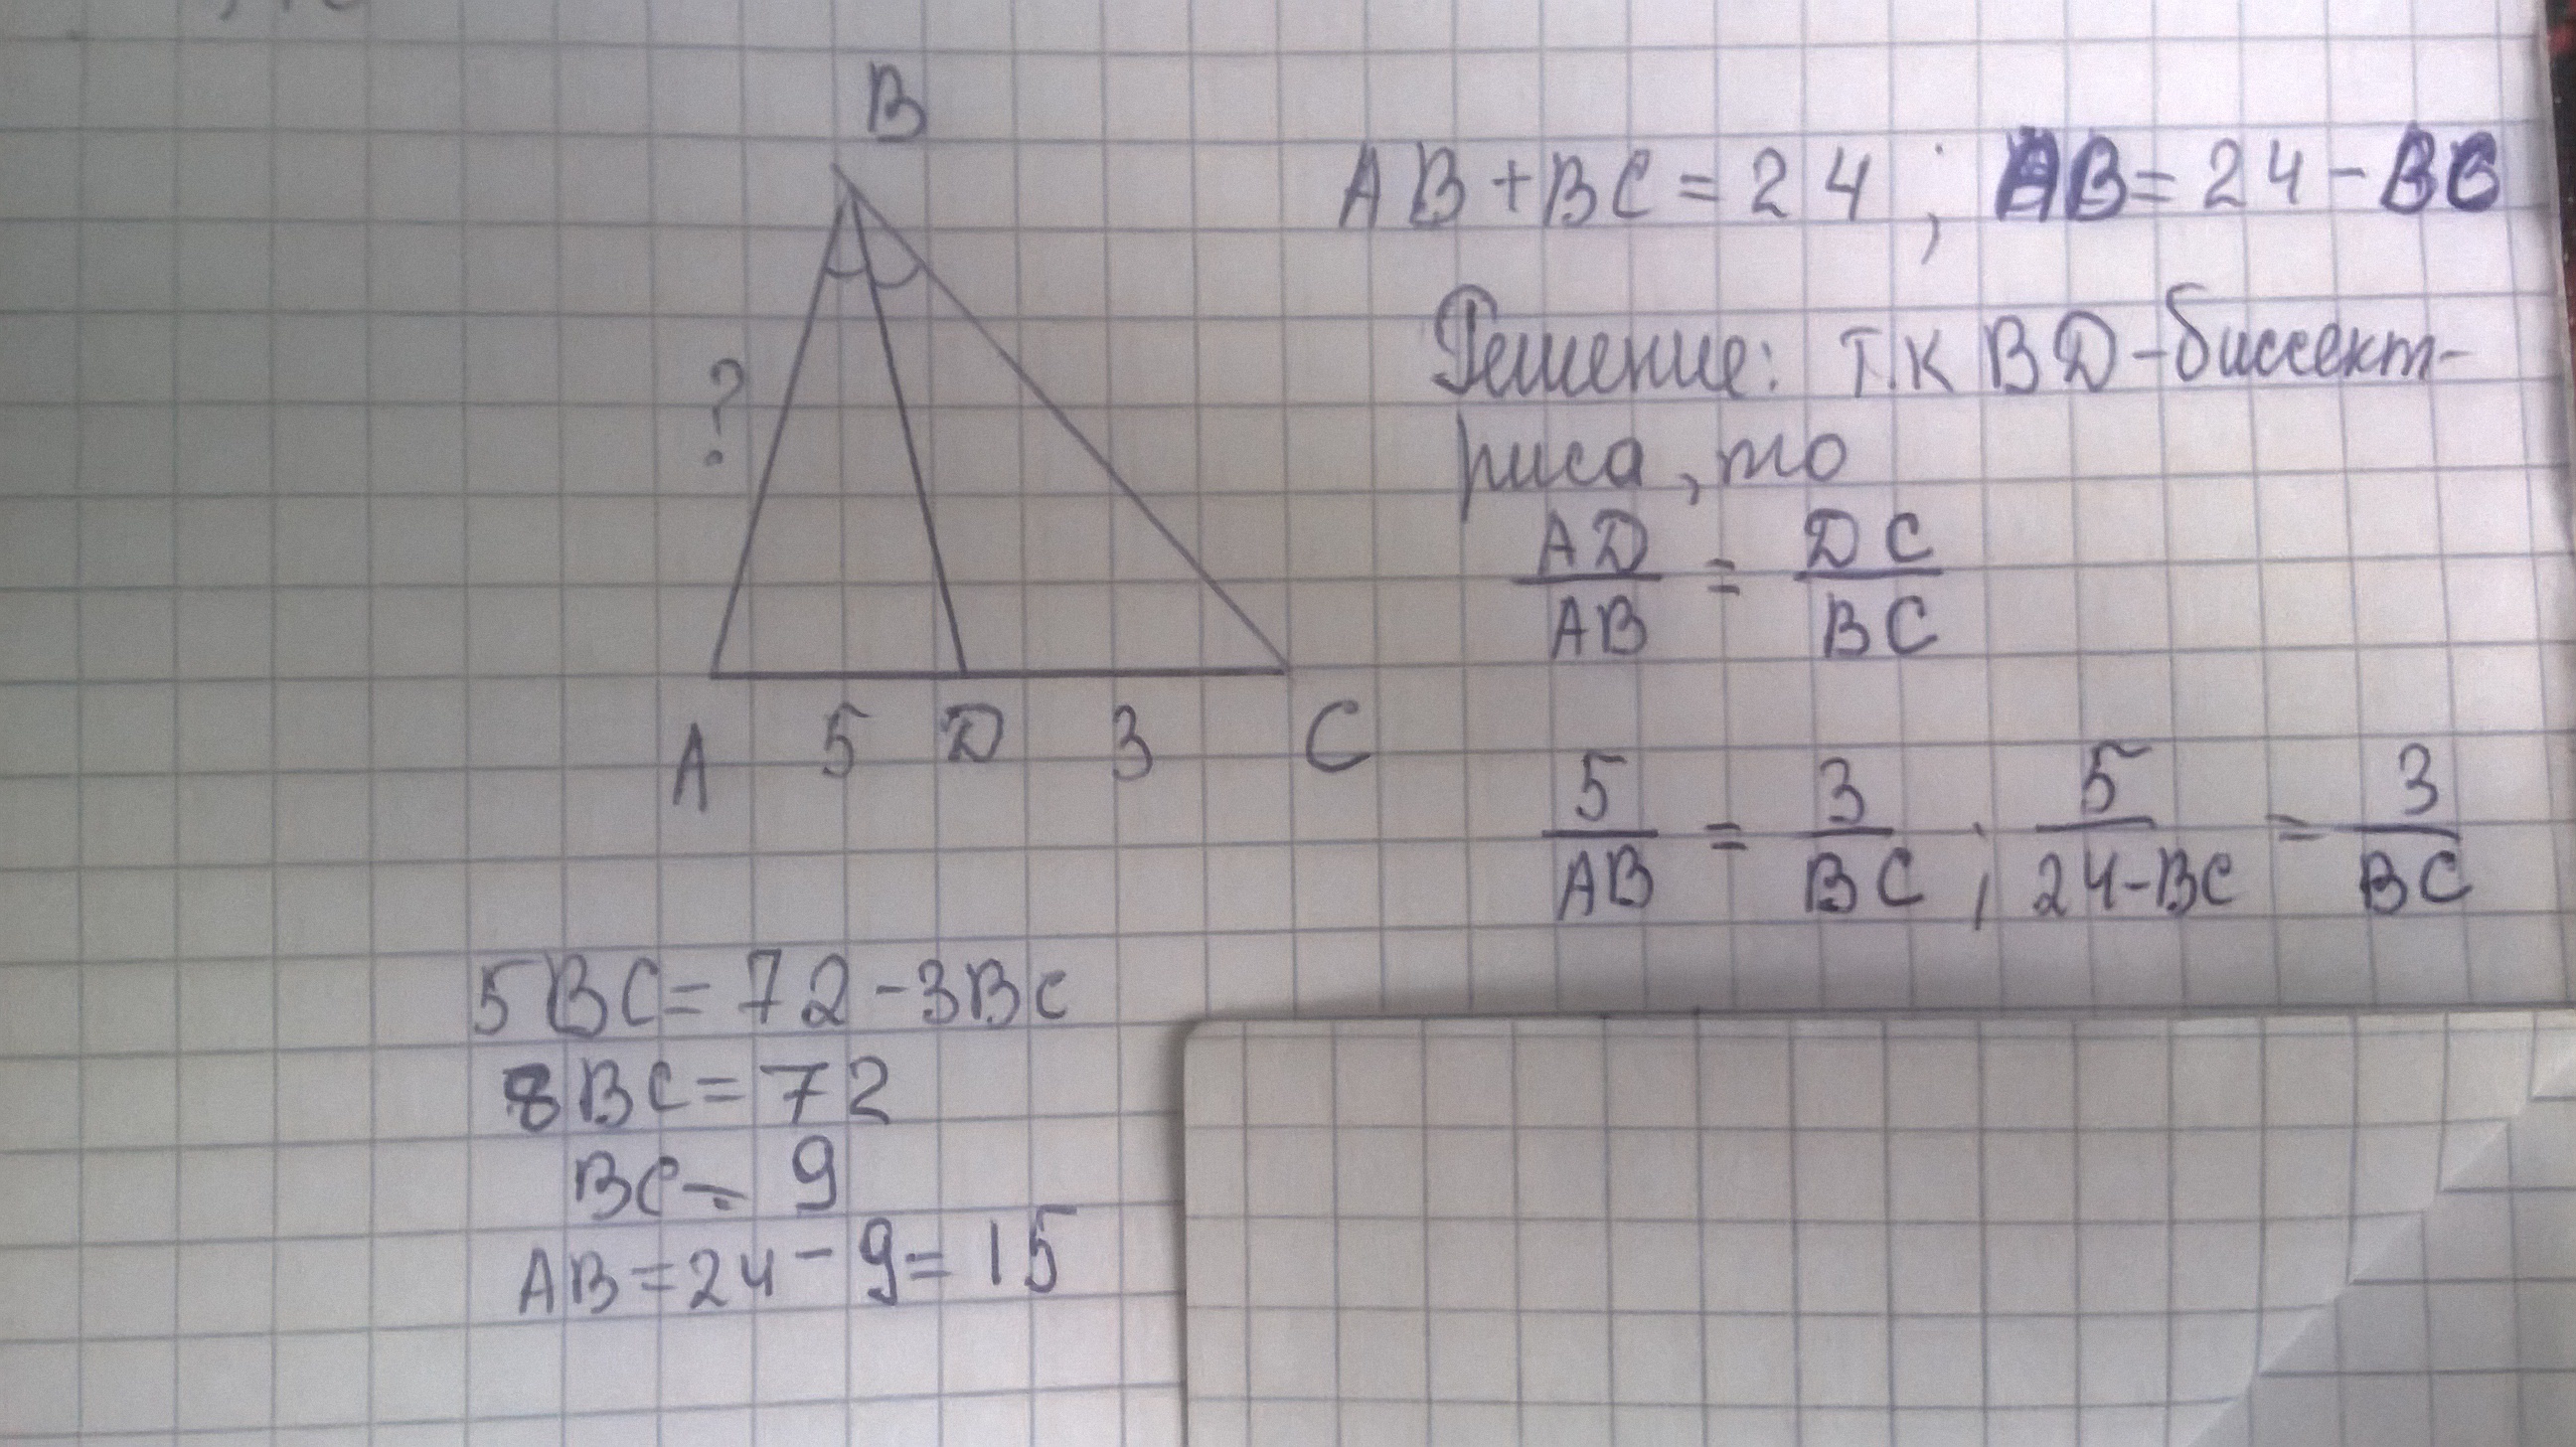 B
AB+BC=24; AB=24-BC
Решение: т.к BD-биссект-
риса, то
?
AD/AB = DC/BC
A 5 D 3 C
5/AB = 3/BC; 5/24-BC = 3/BC
5BC=72-3BC
8BC=72
BC=9
AB=24-9=15